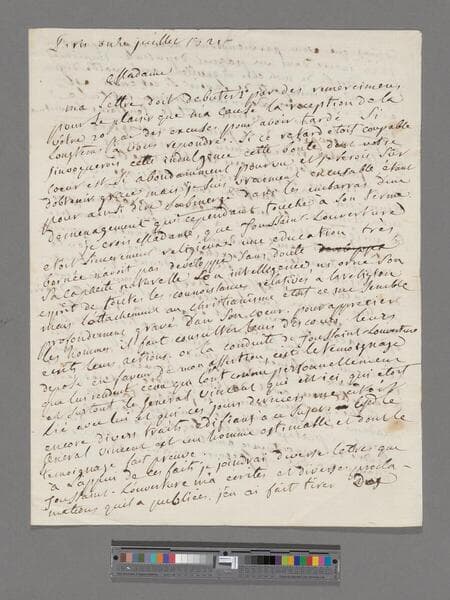 Paris onze juillet 182
Madame
ma Lettre doit debuter par des remercimens
pour Le plaisir que ma causé la reception de la
vôtre et par des excuses pour avoir tardé Si
Longtems a vous repondre. Si ce retard étoit coupable
jinvoquerois cette indulgence cette bonté dont votre
coeur est Si abondamment pourvu et je serois Sûr
d'obtenir grace mais je suis vraiment excusable étant
pour ainsi dire dans les embarras d'un
demenagement qui cependant touche a Son terme
je crois Madame, que Toussaint-Louverture
étoit Sincerement religieux une education tres
bornée navoit pas developpé Sans doute
Sa capacité naturelle Son intelligence ni orné Son
esprit de toute les connoissances relatives a la religion
mais l'attachement au christianisme étoit ce me Semble
profondement gravé dans Son coeur. pour apprecier
les hommes il faut consulter leurs discours, leurs
ecrits, leurs actions. or la conduite de Toussaint-Louverture
depose en faveur de mon assertion, c'est le témoignage
que lui rendent ceux qui l'ont connu personnellement
et Surtout le general Vincent qui est ici, qui étoit
lié avec lui et qui ces jours derniers
encore divers traits edifians a ce Sujet le
General Vincent est un homme estimable et dont le
témoignage fait preuve.
a L'appui de ces faits je joindrai diverse lettres que
Toussaint-Louverture ma ecrites et diverses procla-
mations quil a publiées. j'en ai fait tirer Des